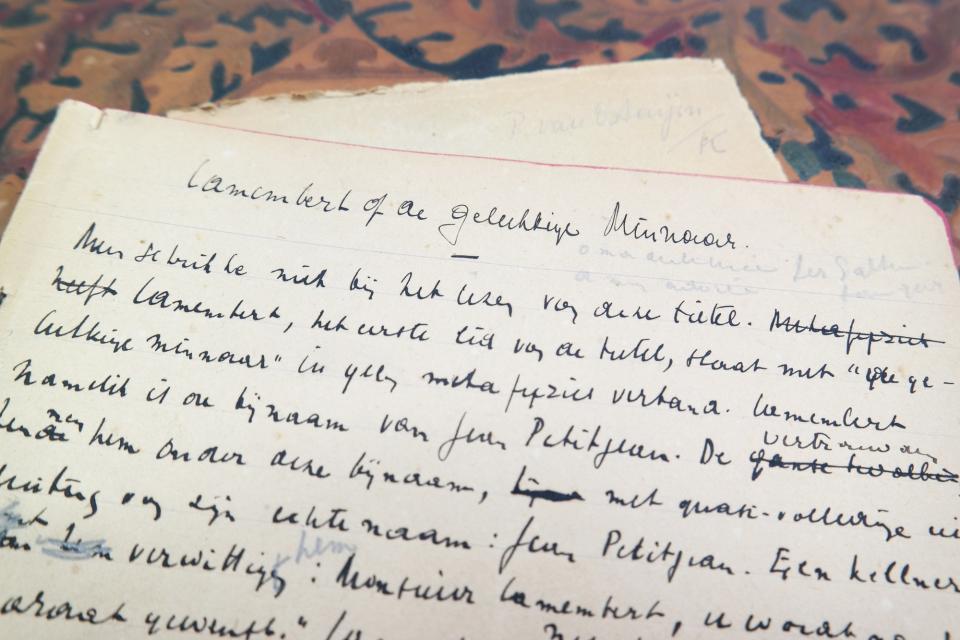 P. van Ostaijen
Camembert of de gelukkige Minnaar.
Men schrikke niet bij het lezen van deze tietel. Metafyziek
heeft Camembert, het eerste lid van de tietel, staat met "de ge-
lukkige minnaar" in geen metafyzies verband. Camembert
namelik is de bijnaam van Jean Petitjean. De
vertrouwden
ganse
men
hem onder deze bijnaam, met quasi-volledige
van zijn echte naam: Jean Petitjean. Een kellner
hem
verwittigen: Monsieur Camembert, u wordt
gewenst."